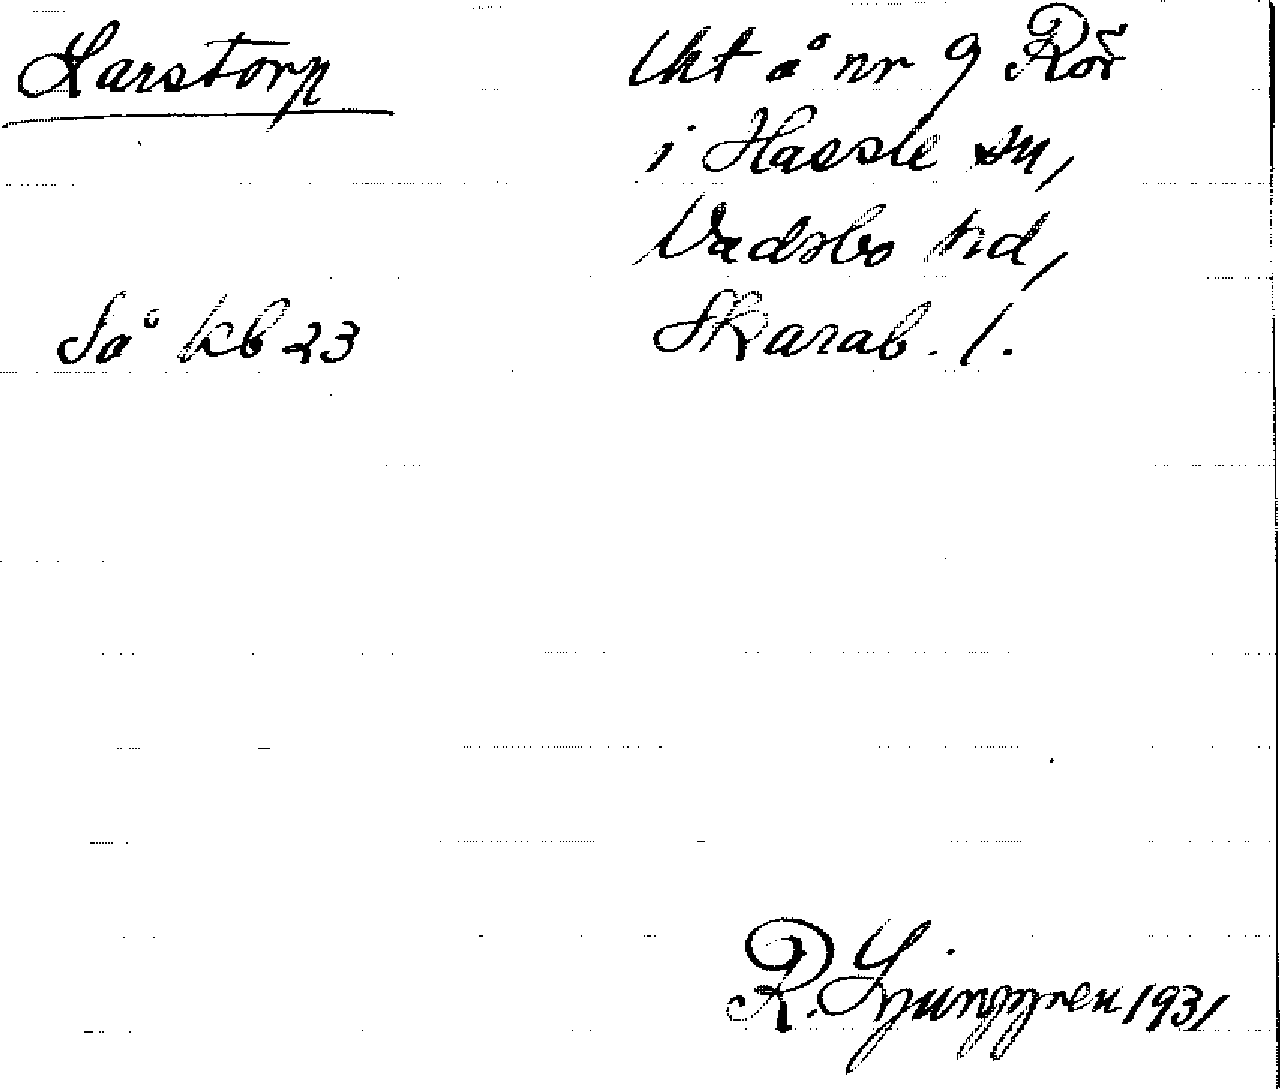 Larstorp
Ukt å nr 9 Rör
i Hassle sn,
Vadsbo hd,
Så kb 23
Skarab. l.
R. Ljunggren 1931